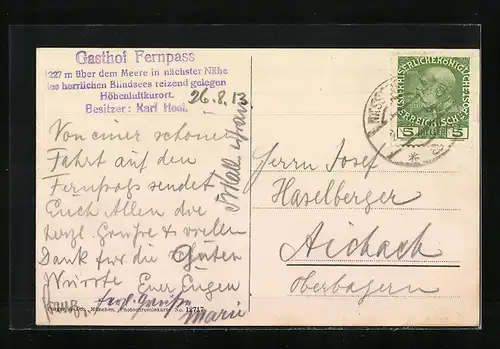 Gasthof Fernpass
1227 m über dem Meere in nächster Nähe
des herrlichen Blindsees reizend gelegen
Höhenluftkurort.
Besitzer: Karl
26.8.13
Von einer schönen
Fahrt auf den
Fernpass sendet
Euch Allen die
herzl. Grüße & vielen
Dank für die Guten
Würste Euer Eugen
herzl. Grüße
Marie
München, Photochromiekarte No. 12717
KAISERLICHE KÖNIGLICHE
ÖSTERREICHISCHE POST
5 HELLER 5
Herrn Josef
Haselberger
Aichach
Oberbayern